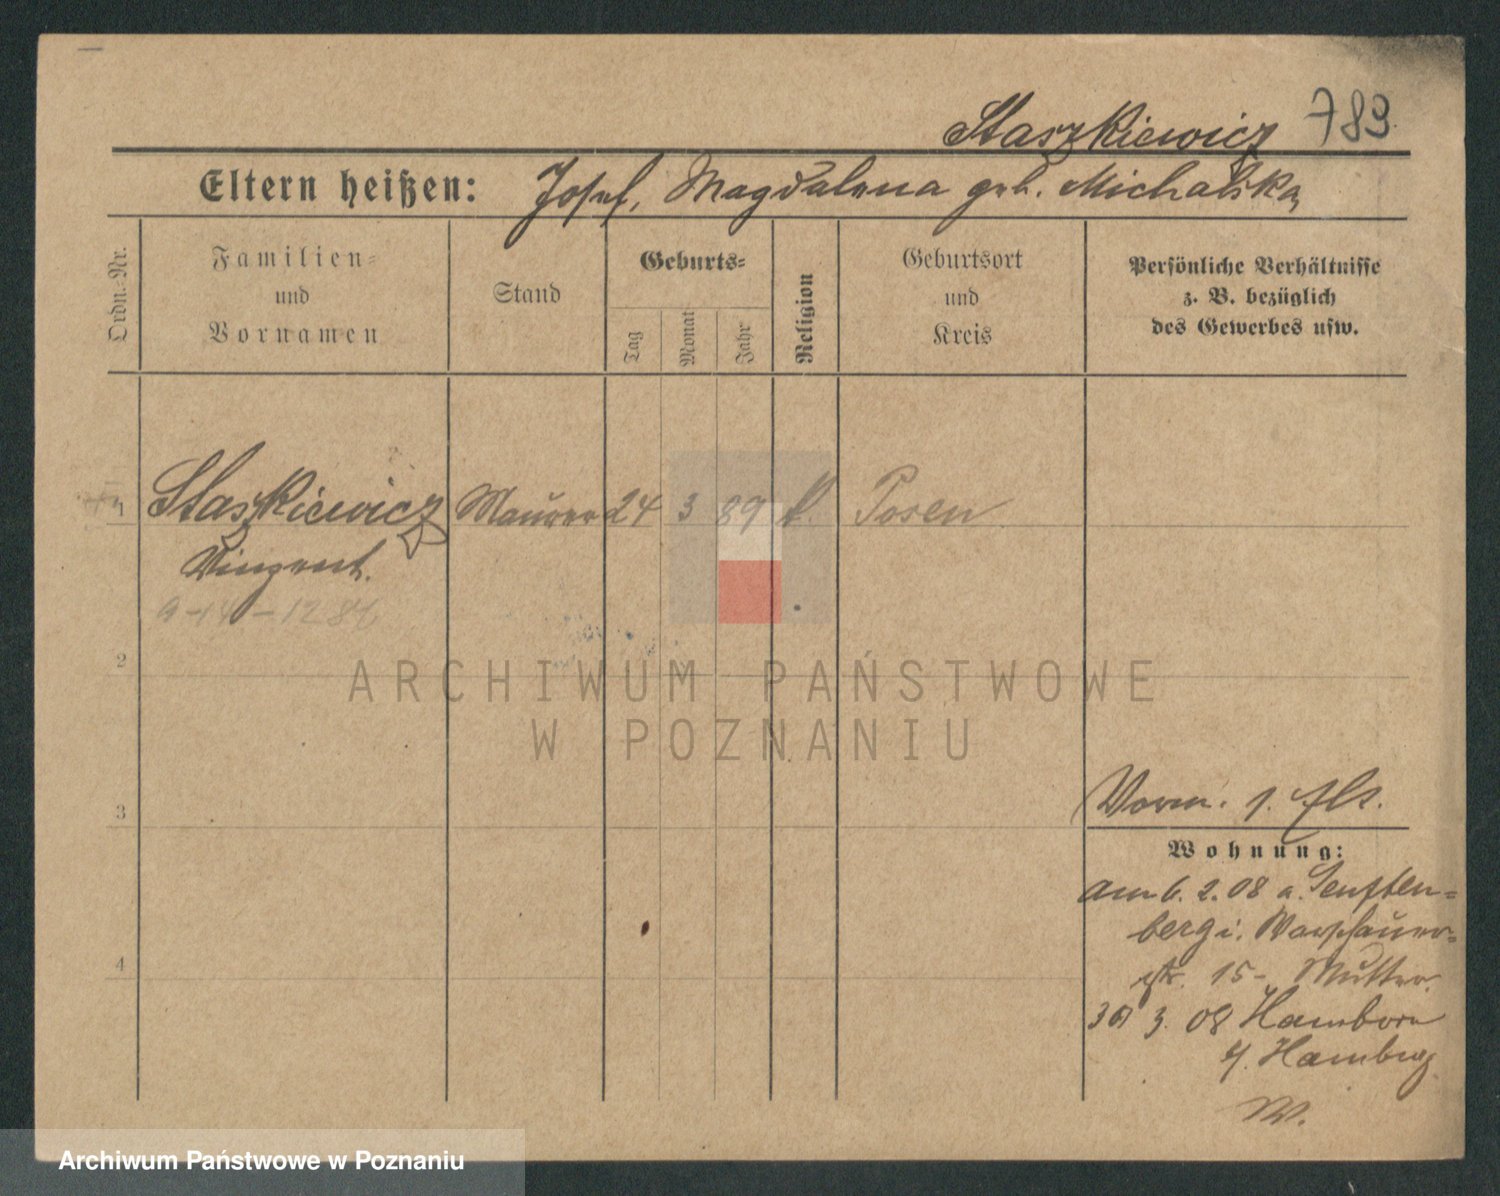 Staszkiewicz 789.
Eltern heißen: Josef, Magdalena geb. Michalska
Ordn.-Nr.
Familien-
und
Vornamen
Stand
Geburts-
Tag
Monat
Jahr
Religion
Geburtsort
und
Kreis
Persönliche Verhältnisse
z. B. bezüglich
des Gewerbes usw.
1 Staszkiewicz Maurer 24 3 89 k. Posen
Vinzent.
2
ARCHIWUM PAŃSTWOWE
W POZNANIU
3
Vorm.
Wohnung:
am 6. 2. 08 a. Senften-
berg i. Warschauer-
str. 15 - Mutter.
3. 08 Hamborn
Hamburg
W.
4
Archiwum Państwowe w Poznaniu